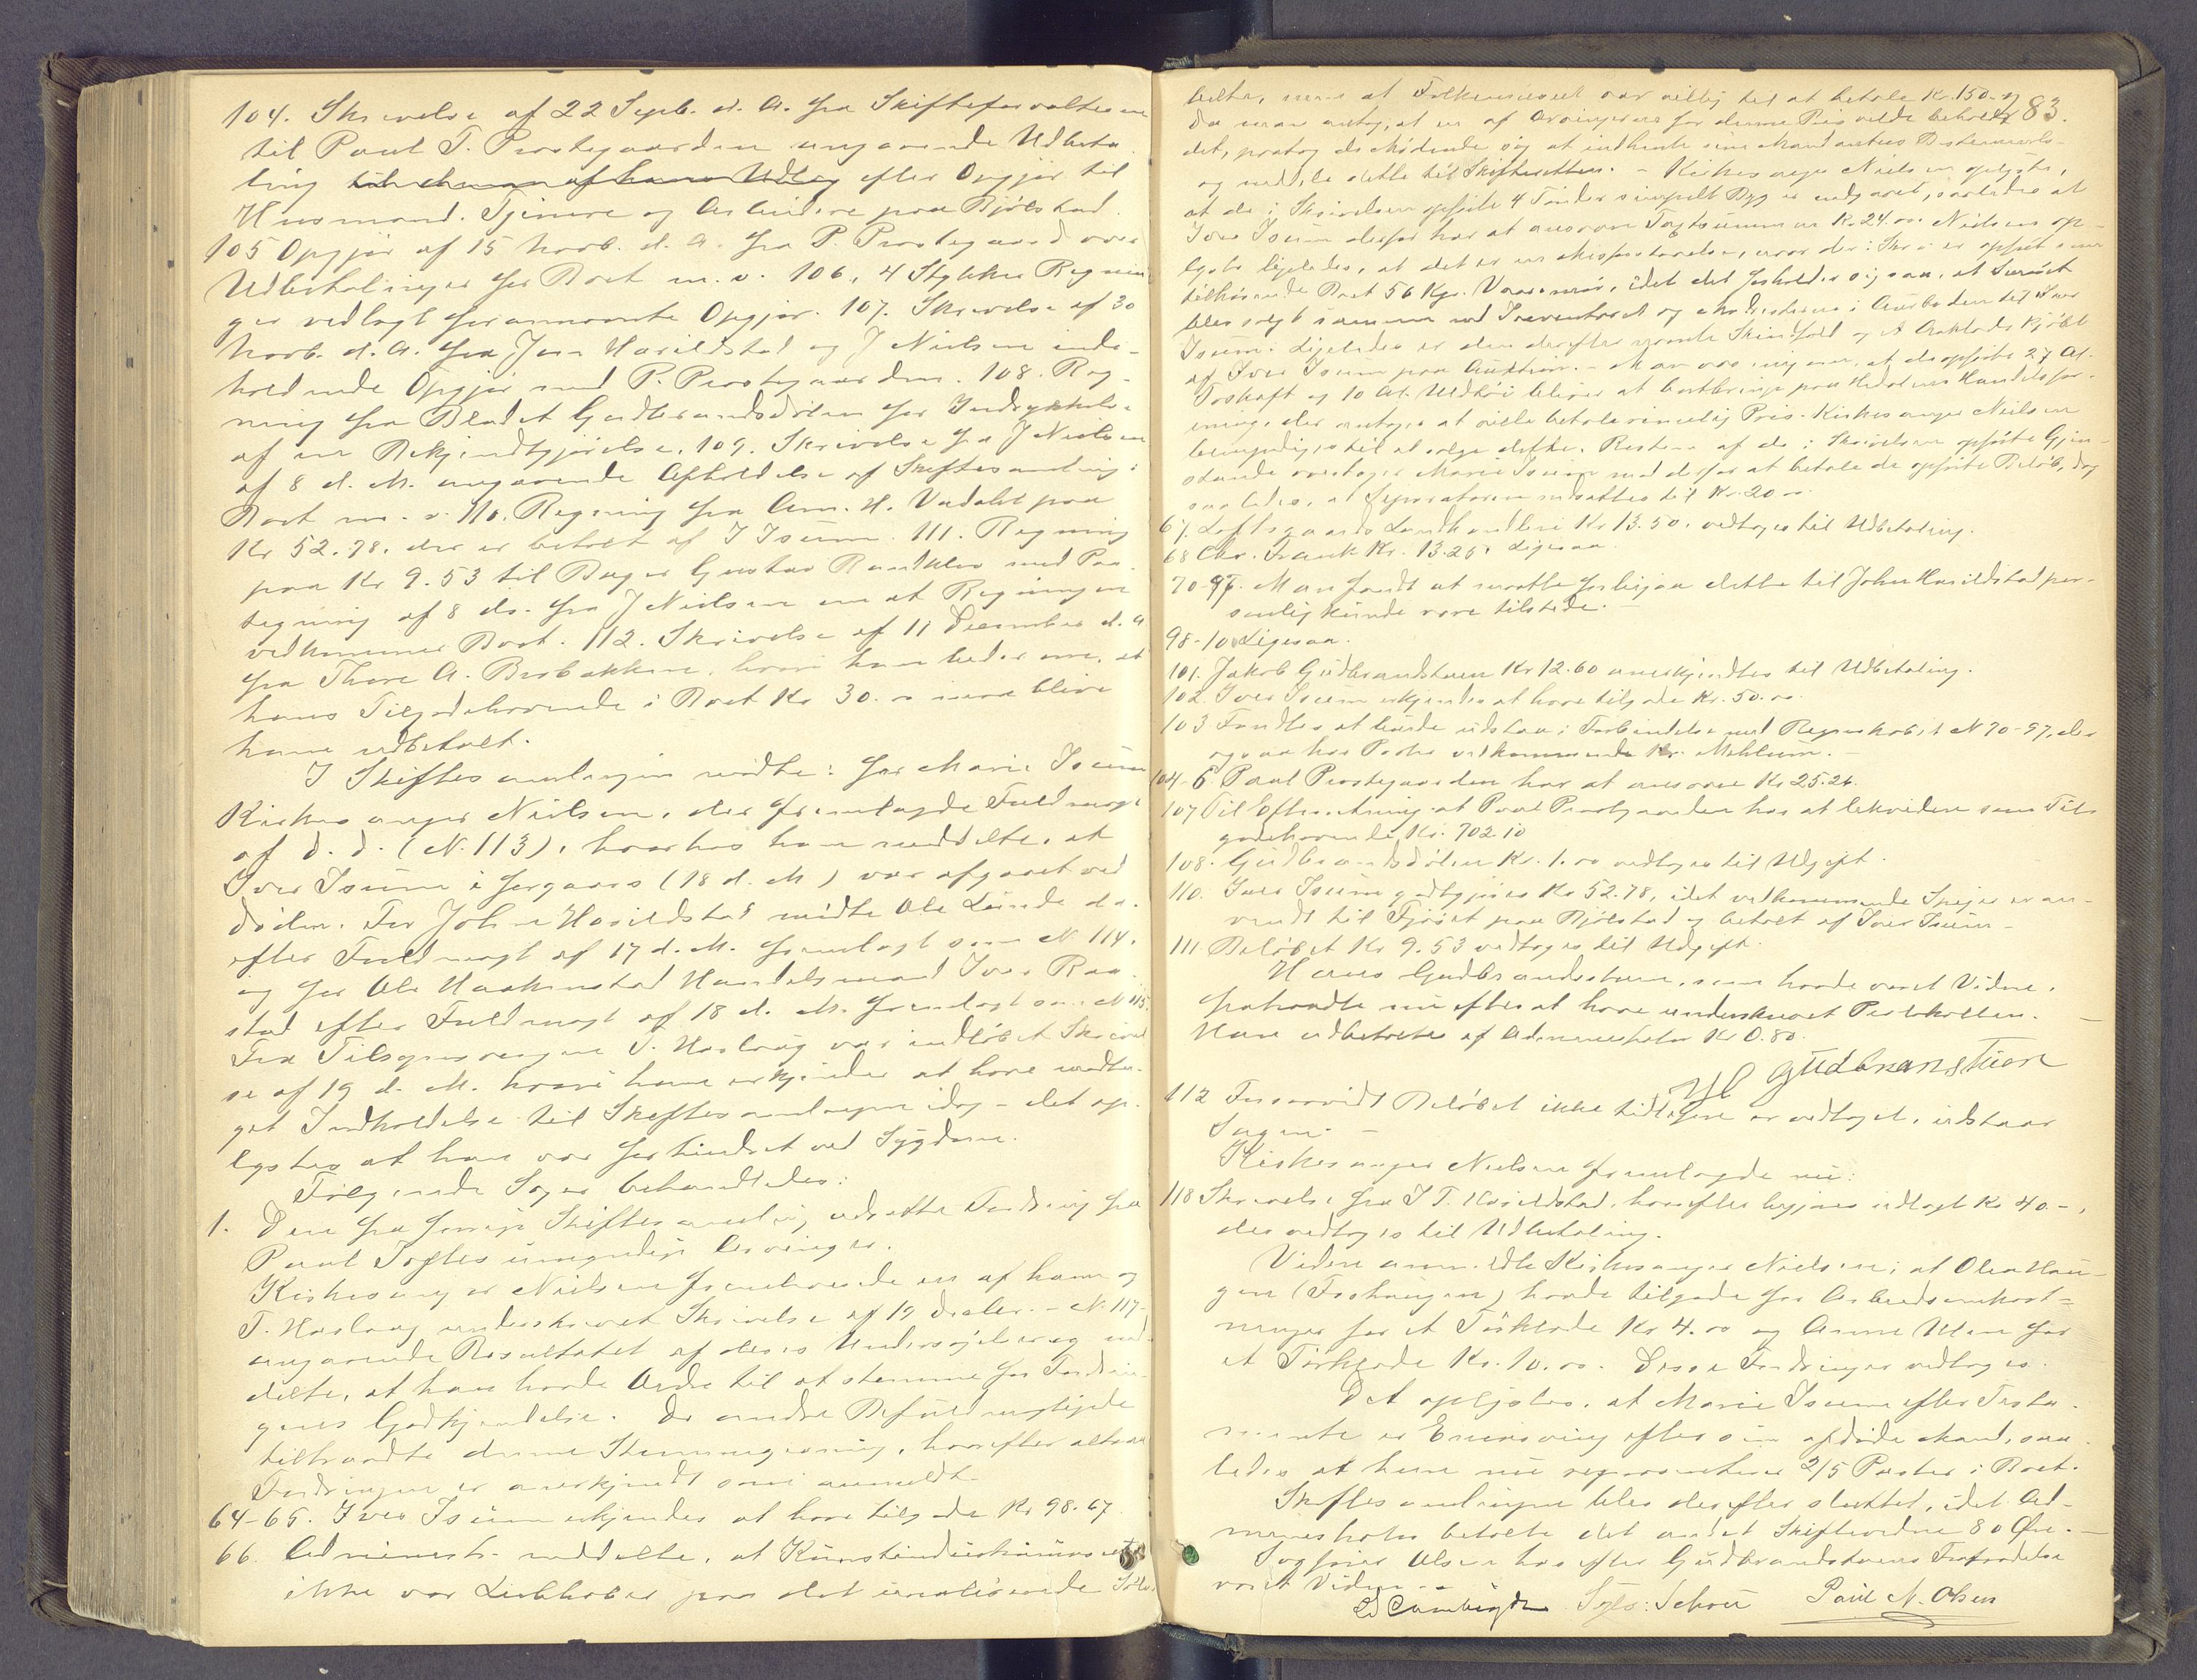 104. Skrivelse af 22 Septb. d. A. fra Skifteforvalteren
til Paul T. Prestegaarden angaaende Udbeta-
ling efter Opgjør til
Husmænd. Tjenere og Arbeidere paa Bjølstad.
105 Opgjør af 15 Novb. d. A. fra P. Prestegaard over
Udbetalinger for Boet m. v. 106, 4 Stykker Regnin-
ger vedlagt forannævnte Opgjør. 107. Skrivelse af 30
Novb. d. A. fra John Harildstad og J Nielsen inde-
holdende Opgjør med P. Prestegaarden. 108. Reg-
ning fra Bladet Gudbrandsdølen for Indrykkelse
af en Bekjendtgjørelse. 109. Skrivelse fra J Nielsen
af 8 d. M. angaaende Afholdelse af Skiftesamling i
Boet m. v. 110. Regning fra Am. H. Vadahl paa
Kr 52.78. der er betalt af I Isum. 111. Regning
paa Kr 9.53 til Bager Gustav Randklev med Paa-
tegning af 8 ds. fra J Nielsen om at Regningen
vedkommer Boet. 112. Skrivelse af 11 December d. A
fra Thore A. Brobakken, hvori han beder om, at
hans Tilgodehavende i Boet Kr 30.00 maa blive
ham udbetalt.
I Skiftesamlingen mødte: for Marie Isum
Kirkesanger Nielsen, der fremlagde Fuldmagt
af d. d. (N. 113), hvorhos han meddelte, at
Iver Isum i forgaars (18 d. M) var afgaaet ved
døden. For John Harildstad mødte Ole Lunde d.
efter Fuldmagt af 17 d. M. fremlagt som N 114.
og for Ole Haakenstad Handelsmand Iver Raa-
stad efter Fuldmagt af 18 d. M. fremlagt som N 115.
Fra Tilsynsvergen T. Haslaug var indløbet Skrivel-
se af 19 d. M. hvori han erkjender at have modta-
get Indkaldelse til Skiftesamlingen idag - det op-
lystes at han var forhindret ved Sygdom.
Følgende Sager behandledes:
1. Den fra forrige Skiftesamling udsatte Fordring fra
Paul Toftes umyndige Arvinger.
Kirkesanger Nielsen fremlagde en af ham og
T. Haslaug underskrevet Skrivelse af 19 denne. - N. 117-
angaaende Resultatet af deres Undersøgelser og med-
delte, at han havde Ordre til at stemme for Fordrin-
gens Godkjendelse. De andre Befuldmægtigede
tiltraadte denne Stemmegivning, hvorefter altsaa
Fordringen er anerkjendt som anmeldt.
64-65. Iver Isum erkjendes at have tilgode Kr 98.67.
66. Administr. meddelte, at Kunstindustrimuseet
ikke var Liebhaber paa det
83.
belte, mens at Folkemuseet var villig til at betale Kr. 150.- og
da man antog, at en af Arvingerne for denne Pris vilde beholde
det, paatog de mødende sig at indhente sine Mandanters Bestemmelse
og meddele dette til Skifteretten. - Kirkesanger Nielsen oplyste,
at de i Skrivelsen opførte 4 Tønder simpelt Byg er
Iver Isum derfor har at ansvare Kr. 24.00. Nielsen op-
lyste ligeledes, at det er en
tilhørende Boet 56 Kg. idet det forholder sig saa, at
blev solgt sammen med Inventaret og
Isum. Ligeledes er den derefter nævnte og et kjøbt
af Iver Isum paa Auktion. - Man var enig om, at de opførte 27 Al.
og 10 Al. bliver at Handelsfor-
ening, der antages at ville betale rimelig Pris. Kirkesanger Nielsen
bemyndiges til at sælge dette. Resten af de i Skrivelsen opførte Gjen-
stande overtager Marie Isum mod derfor at betale de opførte Beløb, dog
saaledes, at Separatoren ansættes til Kr. 20.00.
67. Loftsgaards Landhandleri Kr 13.50. vedtoges til Udbetaling.
68 Chr. Frank Kr. 13.25. Ligesaa.
70-97. Man fandt at maatte forbigaa dette til John Harildstad per-
sonlig kunde være tilstede. -
98-100 Ligesaa.
101. Jakob Gudbrandstuen Kr 12.60 anerkjendtes til Udbetaling.
102. Iver Isum erkjendes at have tilgode Kr. 50.00.
103 Fandtes at burde udstaa i Forbindelse med Regnskabet N 70-97, der
ogsaa har Poster vedkommende Kr. Mehlum. -
104-6 Paul Prestegaarden har at ansvare Kr 25.26.
107 Til Efterretning at Paul Prestgaarden har at lekvidere som Til-
godehavende Kr. 702.10
108. Gudbrandsdølen Kr. 1.00 vedtoges til Udgift.
110. Iver Isum godtgjøres Kr 52.78, idet vedkommende Spiger er an-
vendt til Fjøset paa Bjølstad og betalt af Iver Isum -
111 Beløbet Kr 9.53 vedtoges til Udgift.
Hans Gudbrandstuen, som havde været Vidne,
fratraadte nu efter at have underskrevet Protokollen.
Ham udbetaltes af Administrator Kr 0.80.
H Gudbranstuen
112 Forsaavidt Beløbet ikke tidligere er vedtaget, udstaar
Sagen. -
Kirkesanger Nielsen fremlagde nu:
118 Skrivelse fra J T. Harildstad, hvorefter begjæres udlagt Kr 40.-,
der vedtoges til Udbetaling.
Videre anmeldte Kirkesanger Nielsen, at Olea Hau-
gen havde tilgode for Arbeidsomkost-
ninger for et Tørklæde Kr 4.00 og Anne Moen for
et Tørklæde Kr. 10.00. Disse Fordringer vedtoges.
Det oplystes, at Marie Isum efter Testa-
mente er Enearving efter sin afdøde Mand, saa-
ledes at hun nu repræsenterer 2/5 Parter i Boet.
Skiftesamlingen blev derefter sluttet, idet Ad-
ministrator betalte det andet Skiftevidne 80 Øre. -
Sagfører Olsen har efter Gudbrandstuens Fratrædelse
været Vidne. -
Sofs: Schou Paul N. Olsen